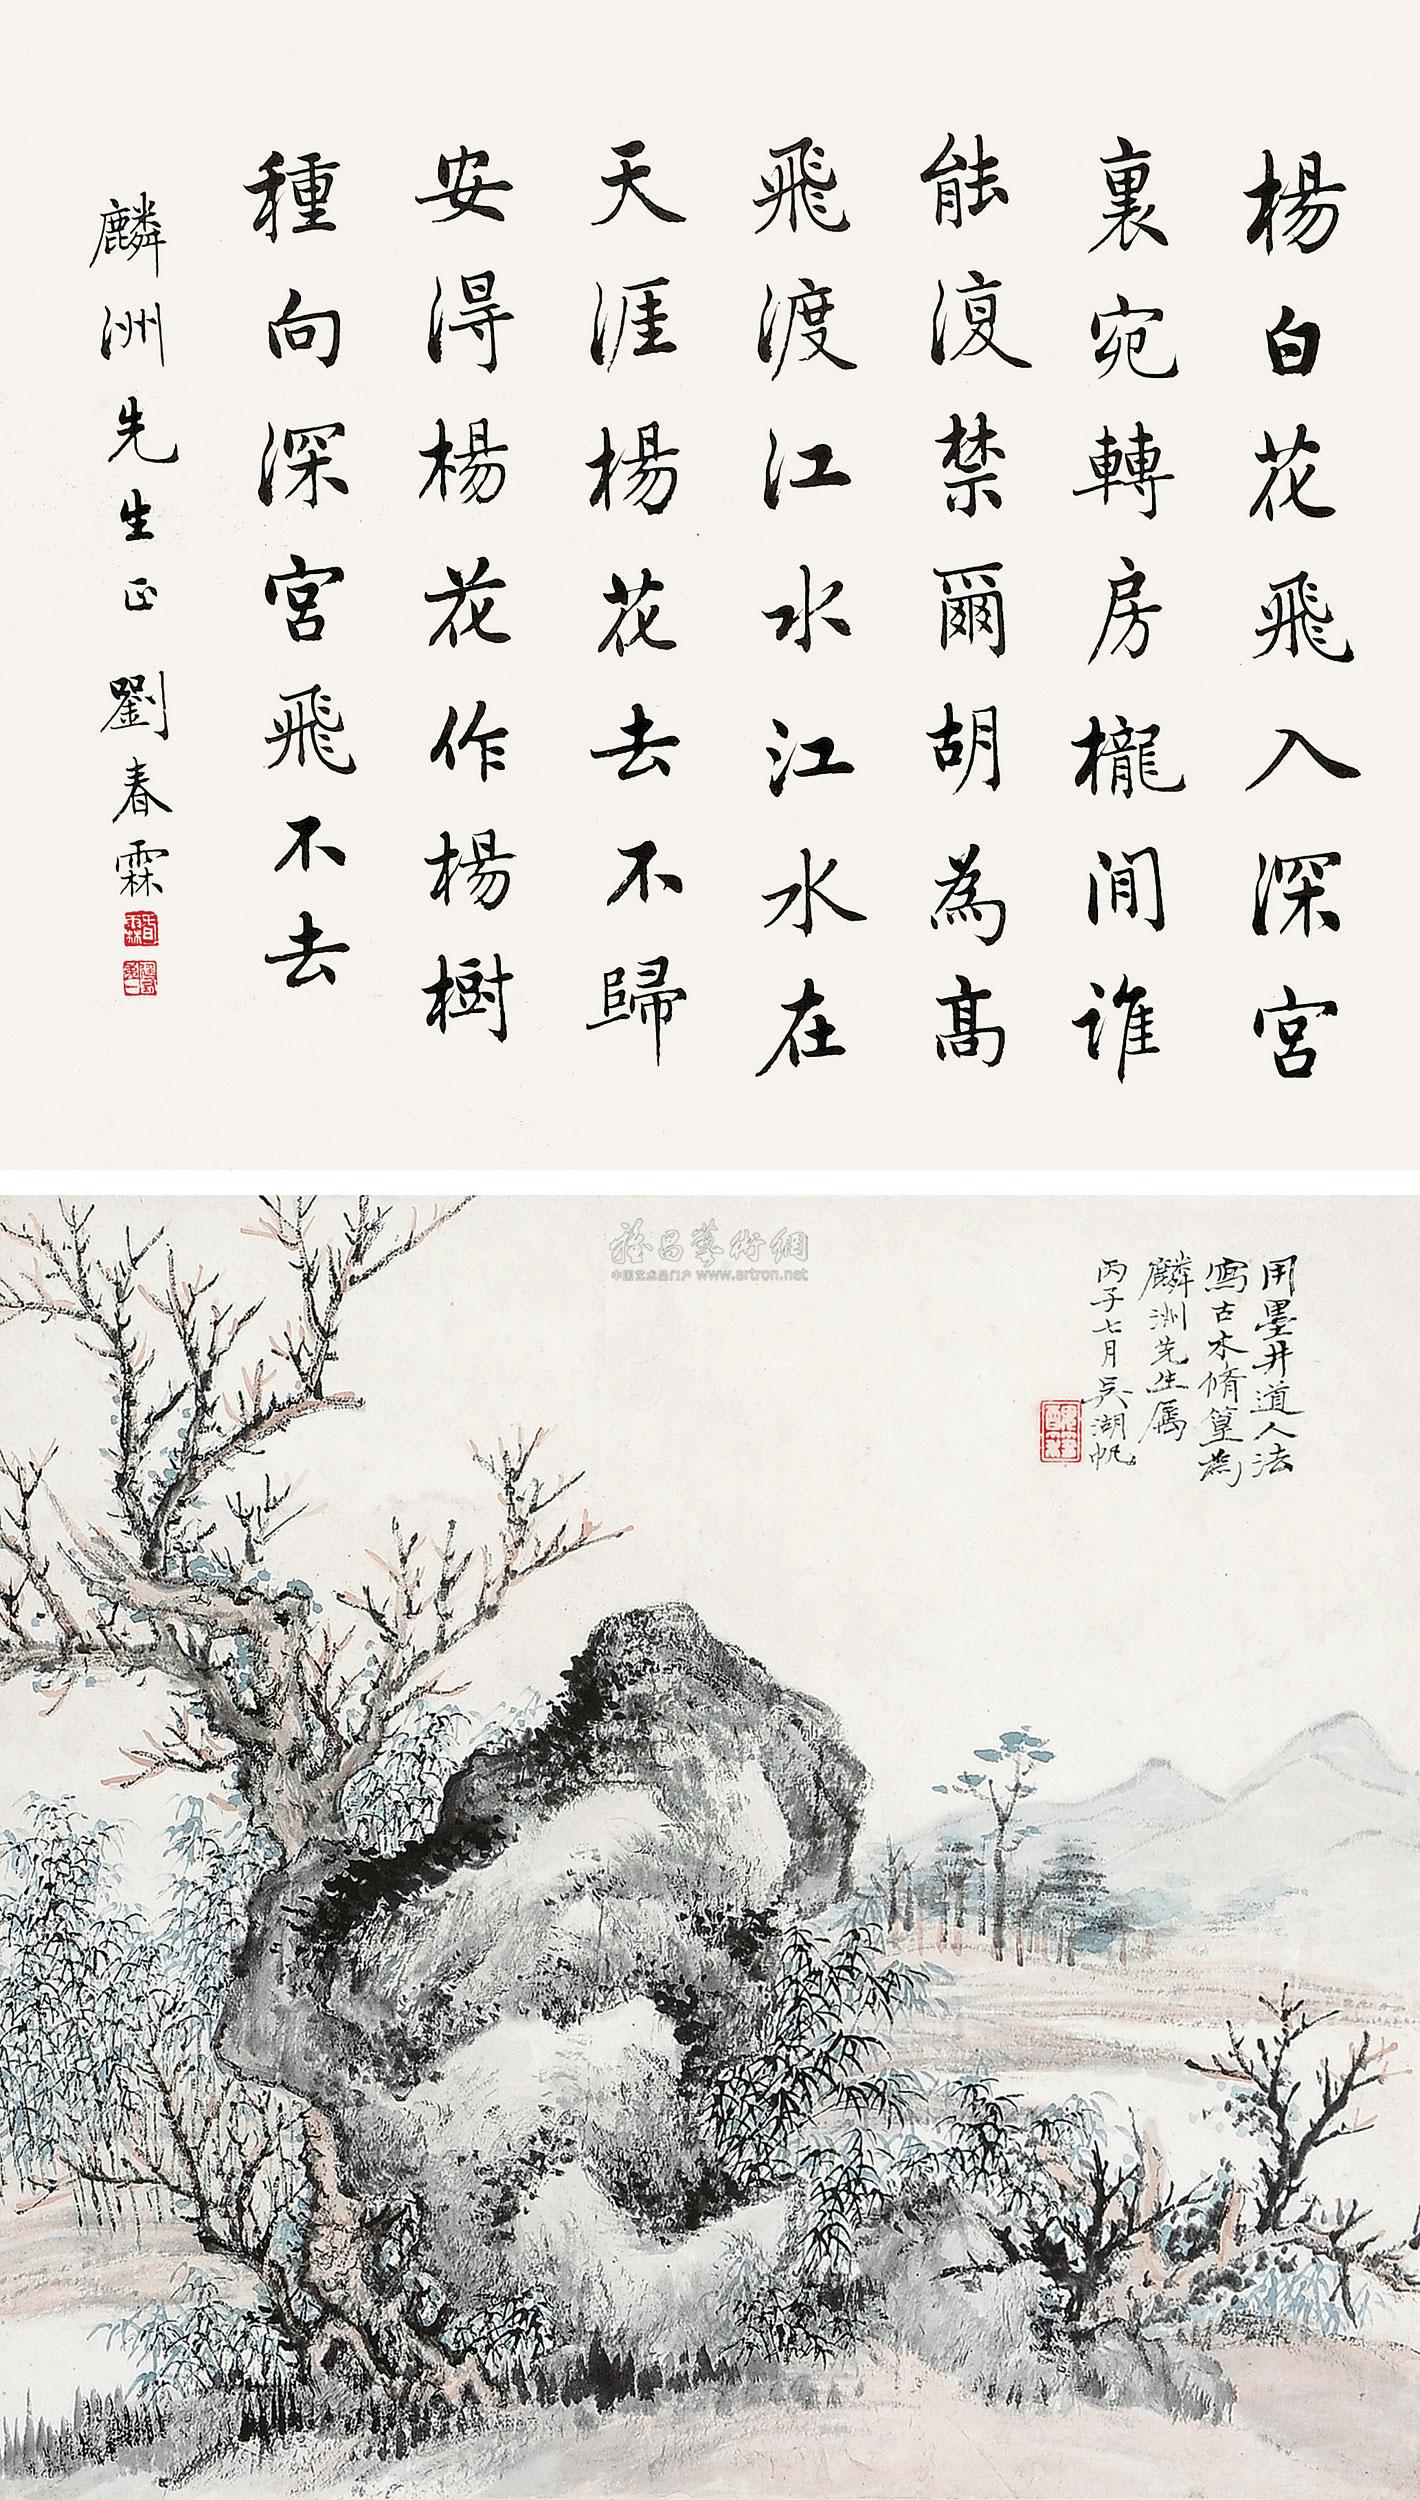 楊白花飛入深宮
裏宛轉房櫳間誰
能復禁爾胡為高
飛渡江水江水在
天涯楊花去不歸
安得楊花作楊樹
種向深宮飛不去
麟洲先生正劉春霖
用墨井道人法
寫古木脩篁為
麟洲先生属
丙子七月吳湖帆
中国艺术品门户 www.artron.net